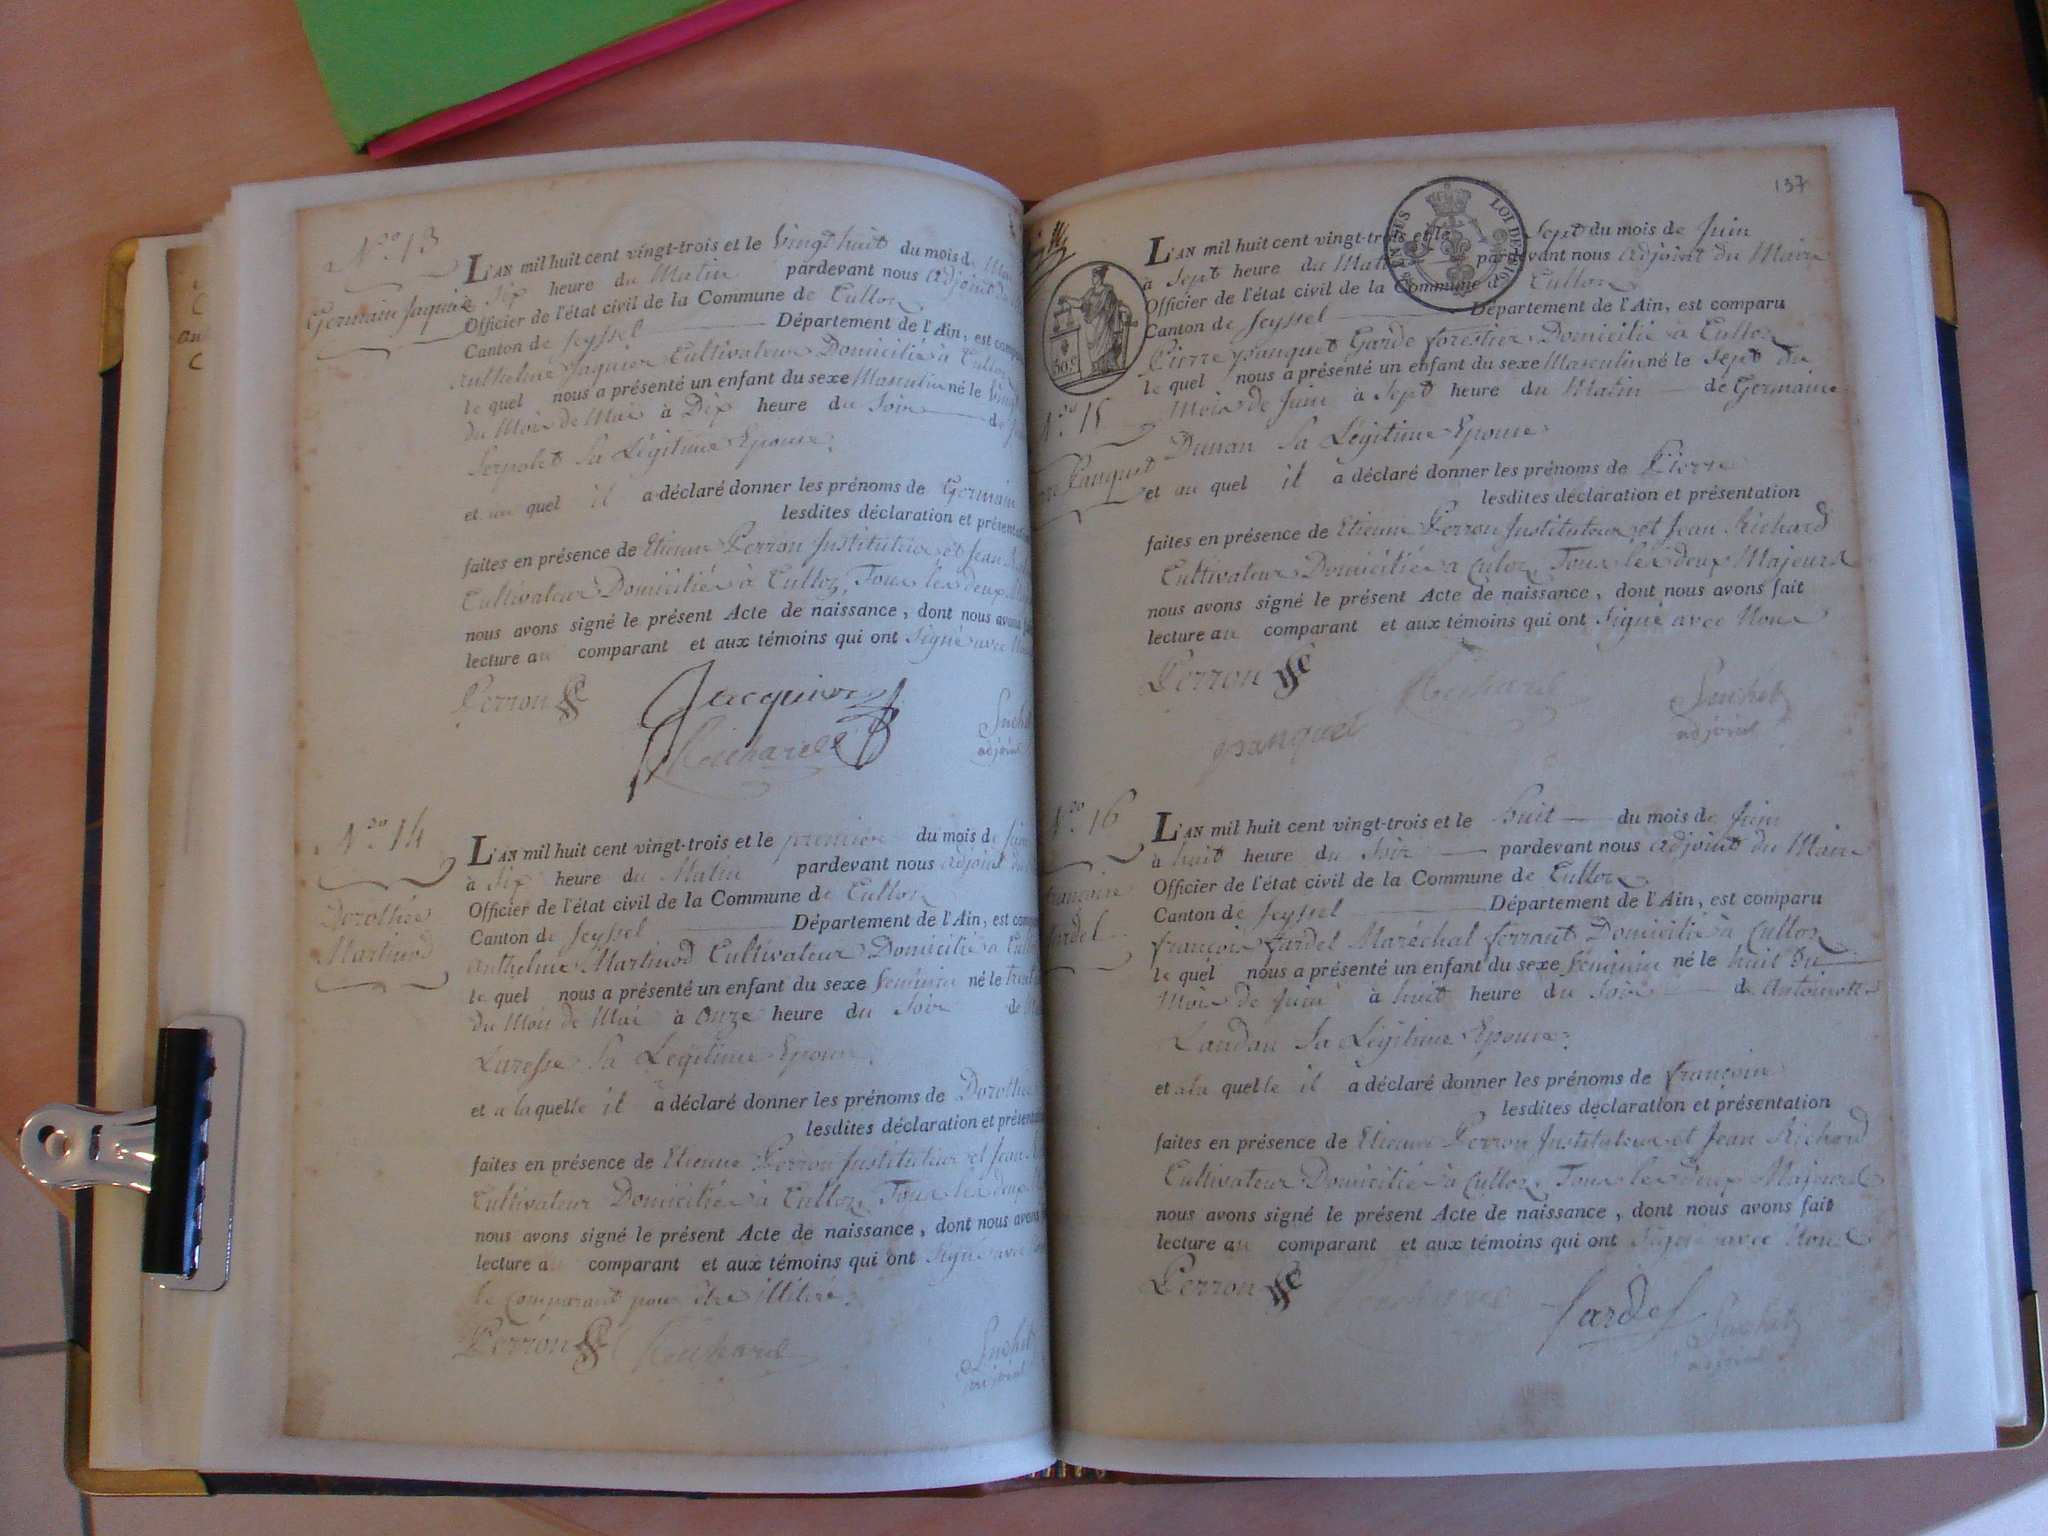 N.º 13
Germain Jaquier
L'AN mil huit cent vingt-trois et le Vingt huit du mois de Mai
à Six heure du Matin pardevant nous adjoint du
Officier de l'état civil de la Commune de Culloz
Canton de Seyssel Département de l'Ain, est
Anthelme Jaquier Cultivateur Domicilié à Culloz
le quel nous a présenté un enfant du sexe Masculin né le Vingt
du Mois de Mai à Dix heure du Soir de
Serpolet Sa Légitime Epouse
et au quel il a déclaré donner les prénoms de Germain
lesdites déclaration et
faites en présence de Etienne Perron Instituteur et Jean
Cultivateur Domiciliés à Culloz, Tous les deux
nous avons signé le présent Acte de naissance, dont nous avons
lecture au comparant et aux témoins qui ont Signé avec
Perron Jacquier
Richard Suchet
adjoint
N.º 14
Dorothée
Martinod
L'AN mil huit cent vingt-trois et le première du mois de Juin
à Six heure du Matin pardevant nous adjoint du
Officier de l'état civil de la Commune de Culloz
Canton de Seyssel Département de l'Ain, est
Anthelme Martinod Cultivateur Domicilié à
le quel nous a présenté un enfant du sexe féminin né le
du Mois de Mai à Onze heure du Soir de
Laresse Sa Légitime Epouse
et a la quelle il a déclaré donner les prénoms de Dorothée
lesdites déclaration et
faites en présence de Etienne Perron Instituteur et Jean
Cultivateur Domiciliés à Culloz, Tous les deux
nous avons signé le présent Acte de naissance, dont nous avons
lecture au comparant et aux témoins qui ont Signé avec
le Comparant pour être illitéré
Perron Richard Suchet
adjoint
137
LOI DE 1816
50.c
L'AN mil huit cent vingt-trois et le Sept du mois de Juin
à Sept heure du Matin pardevant nous adjoint du Maire
Officier de l'état civil de la Commune de Culloz
Canton de Seyssel Département de l'Ain, est comparu
Pierre panquet Garde forestier Domicilié à Culloz
le quel nous a présenté un enfant du sexe Masculin né le Sept du
N.º 15
Mois de Juin à Sept heure du Matin de Germaine
Dunan Sa Légitime Epouse
Panquet
et au quel il a déclaré donner les prénoms de Pierre
lesdites déclaration et présentation
faites en présence de Etienne Perron Instituteur et Jean Richard
Cultivateur Domiciliés a Culoz, Tous les deux Majeurs
nous avons signé le présent Acte de naissance, dont nous avons fait
lecture au comparant et aux témoins qui ont Signé avec Nous
Perron Richard Suchet
panquet adjoint
N.º 16
francoise
fardel
L'AN mil huit cent vingt-trois et le huit du mois de Juin
à huit heure du Soir pardevant nous adjoint du Maire
Officier de l'état civil de la Commune de Culloz
Canton de Seyssel Département de l'Ain, est comparu
françois fardel Maréchal ferrant Domicilié à Culloz
le quel nous a présenté un enfant du sexe féminin né le huit Du
Mois de Juin à huit heure du Soir de Antoinette
Landau Sa Légitime Epouse
et a la quelle il a déclaré donner les prénoms de françoise
lesdites déclaration et présentation
faites en présence de Etienne Perron Instituteur et Jean Richard
Cultivateur Domiciliés à Culloz, Tous les deux Majeurs
nous avons signé le présent Acte de naissance, dont nous avons fait
lecture au comparant et aux témoins qui ont Signé avec Nous
Perron Richard fardel Suchet
adjoint